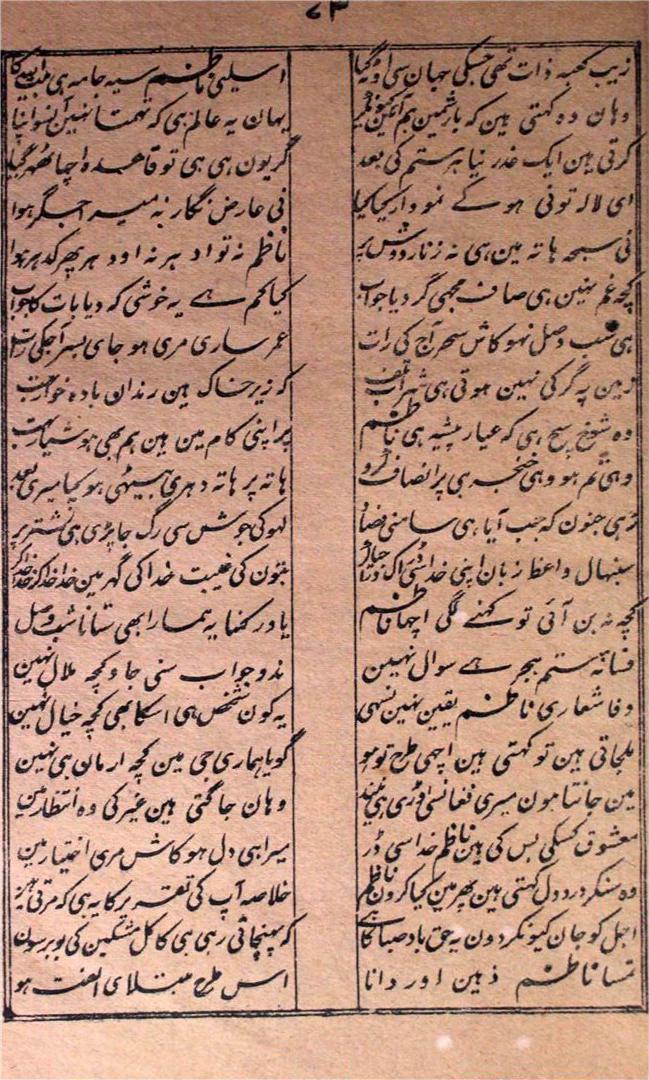 ۷۳
زیب کعبہ ذات تھی جسکی جہان سی اوٹھ گیا اسلیی ناظم سیہ جامہ ہی
وہان وہ کہتی ہین کہ بار شمین ہم یہان یہ عالم ہی کہ تھمتا نہین آنسو اپنا
کرتی ہین ایک عذر نیا ہر ستم کی بعد گر یون ہی ہی تو قاعدہ اچھا ٹھہر گیا
ای لالہ تونی ہو کے نمودار کیا کیا نی عارض نگار نہ میرا جگر ہوا
نی سبحہ ہاتہ مین ہی نہ زنار دوش پر ناظم نہ تو ادہر نہ اودہر پھر کدہر ہوا
کچہ غم نہین ہی صاف مجھی گر دیا جواب کیا کم ہے یہ خوشی کہ دیا بات کا جواب
ہی شب وصل نہو کاش سحر آج کی رات عمر ساری مری ہو جای بسر آجکی رات
زمین پہ گر کی نہین ہوتی ہی شراب تلف کہ زیر خاک ہین رندان بادہ خوار
وہ شوخ سچ ہی کہ عیار پیشہ ہی ناظم پر اپنی کام مین ہین ہم بھی ہوشیار بہت
وہی تم ہو وہی خنجر ہی پر انصاف کرو ہاتہ پر ہاتہ دہری بیٹھی ہو کیا میری بعد
زہی جنون کہ جب آیا ہی سامنی فصاد لہو کی جوش سی رگ جا پڑی ہی نشتر پر
سنبھال واعظ زبان اپنی خدا سی ڈر اک بتون کی غیبت خدا کی گہر مین خدا خدا کر خدا خدا کر
کچہ نہ بن آئی تو کہنے لگی اچھا ناظم یاد رکھنا یہ ہمارا بھی ستانا شب وصل
فسانہ ستم ہجر ہے سوال نہین ندو جواب سنی جاو کچہ ملال نہین
وفا شعاری ناظم یقین نہین نسہی یہ کون شخص ہی اسکا بھی کچہ خیال نہین
ملجاتی ہین تو کہتی ہین اچھی طرح تو ہو گویا ہماری جی مین کچہ ارمان ہی نہین
مین جانتا ہون میری فغانسی اوڑی ہی نیند وہان جاگتی ہین غیر کی وہ انتظار مین
معشوق کسکی بس کی ہین ناظم خدا سی ڈر میرا ہی دل ہو کاش مری اختیار مین
وہ سنکر درد دل کہتی ہین پھر مین کیا کرون ناظم خلاصہ آپ کی تقریر کا یہ ہی کہ مرتی ہین
اجل کو جان کیونکر دون یہ حق باد صبا کا ہے کہ پہنچاتی رہی ہی کاکل مشکین کی بو برسون
تمسا ناظم ذہین اور دانا اس طرح مبتلای الفت ہو